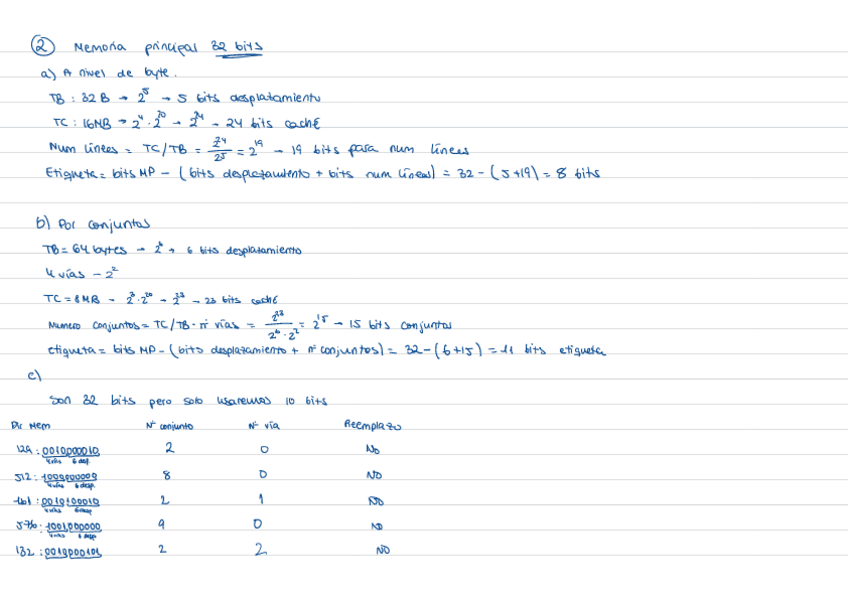 ② Memoria principal 32 bits
a) A nivel de byte.
TB: 32B → 2^5 → 5 bits desplazamiento
TC: 16MB → 2^4 · 2^20 → 2^24 → 24 bits caché
Num líneas = TC/TB = 2^24/2^5 = 2^19 → 19 bits para num líneas
Etiqueta = bits MP - (bits desplazamiento + bits num líneas) = 32 - (5+19) = 8 bits
b) Por conjuntos
TB = 64 bytes → 2^6 → 6 bits desplazamiento
4 vías - 2^2
TC = 8MB - 2^3 · 2^20 → 2^23 → 23 bits caché
Numero conjuntos = TC/TB · nº vías = 2^23/2^6 · 2^2 = 2^15 → 15 bits conjuntos
etiqueta = bits MP - (bits desplazamiento + nº conjuntos) = 32 - (6+15) = 11 bits etiqueta
c)
Son 32 bits pero solo usaremos 10 bits
Dir Mem Nº conjunto Nº vía Reemplazo
129: 0010000010 2 0 No
512: 1000000000 8 0 NO
161: 0010100010 2 1 No
576: 1001000000 9 0 No
132: 0010000101 2 2 NO